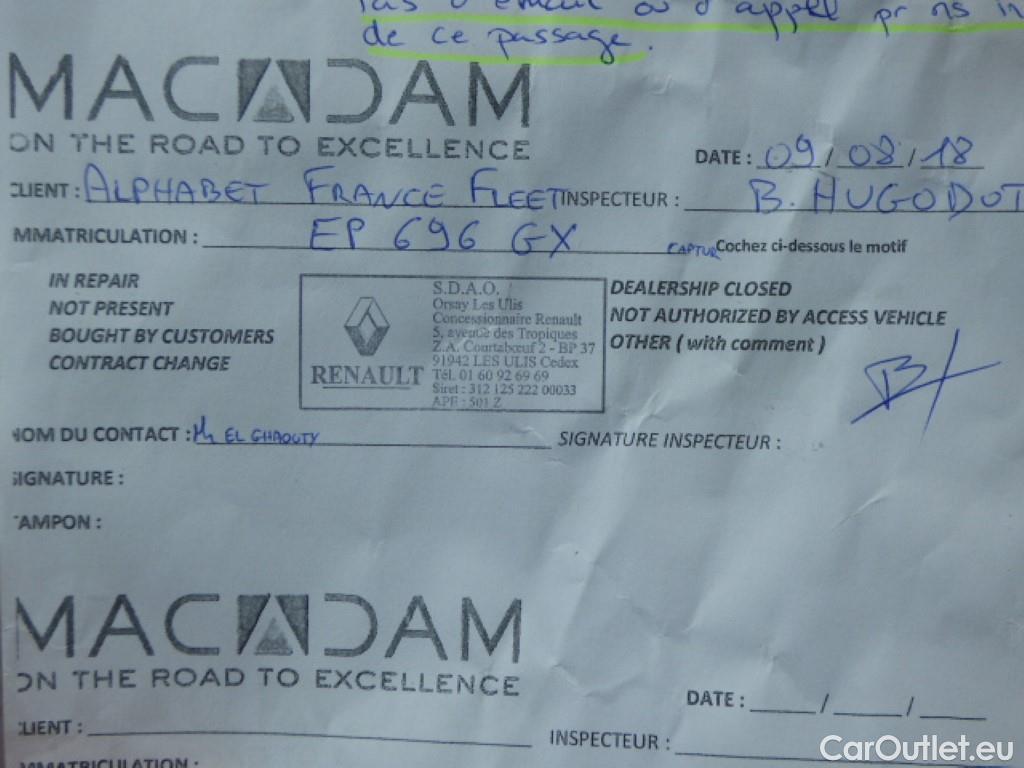 d'appel pr ns
de ce passage.
MACADAM
ON THE ROAD TO EXCELLENCE
DATE : 09/08/18
CLIENT : ALPHABET FRANCE FLEET INSPECTEUR : B. HUGODOT
MMATRICULATION : EP 696 GX CAPTUR Cochez ci-dessous le motif
IN REPAIR
NOT PRESENT
BOUGHT BY CUSTOMERS
CONTRACT CHANGE
RENAULT
S.D.A.O.
Orsay Les Ulis
Concessionnaire Renault
5, avenue des Tropiques
Z.A. Courtabœuf 2 - BP 37
91942 LES ULIS Cedex
Tél. 01 60 92 69 69
Siret : 312 125 222 00033
APE : 501 Z
DEALERSHIP CLOSED
NOT AUTHORIZED BY ACCESS VEHICLE
OTHER ( with comment )
NOM DU CONTACT : Mr EL GHAOUTY
SIGNATURE INSPECTEUR :
SIGNATURE :
TAMPON :
MACADAM
ON THE ROAD TO EXCELLENCE
DATE : ____/____/____
CLIENT :
INSPECTEUR :
MMATRICULATION :
CarOutlet.eu